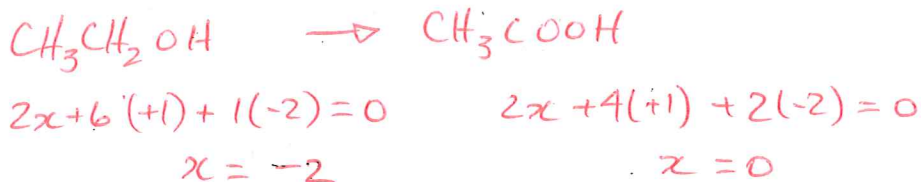 CH₃CH₂OH → CH₃COOH
2x+6(+1)+1(-2)=0 2x+4(+1)+2(-2)=0
x = -2 x = 0